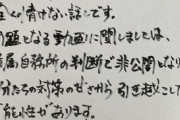 く情けない話です。
題となる動画に関しましては、
属自務所の判断で非公開となり
分たちの対策の甘さから引き起こした
能性があります。